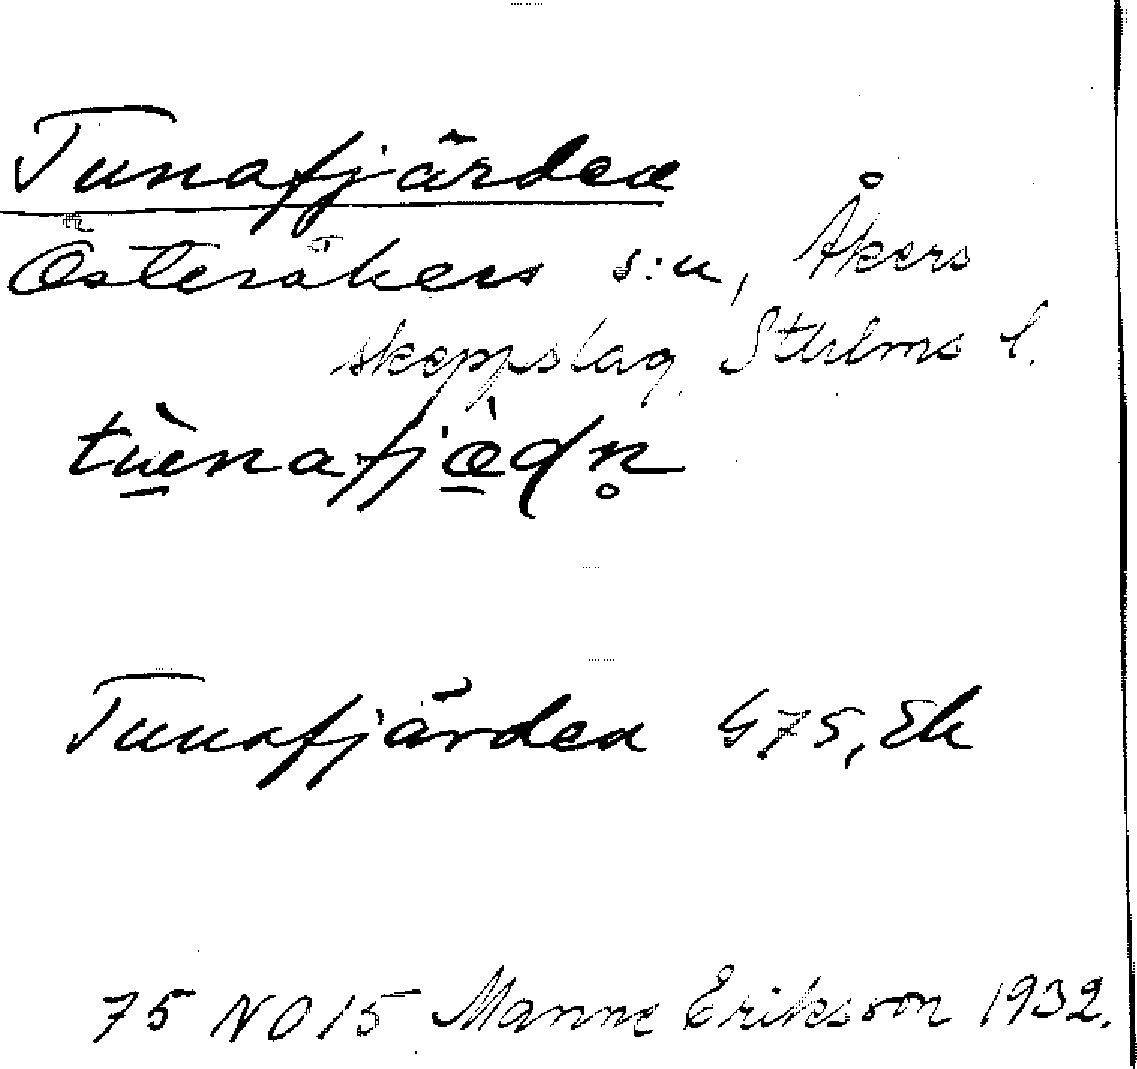 Tunafjärden
Österåkers s:n, Åkers
skeppslag, Sthlms l.
tùenafjæ̀ɖn̥
Tunafjärden G75, Ek
75 NO 15 Manne Eriksson 1932.